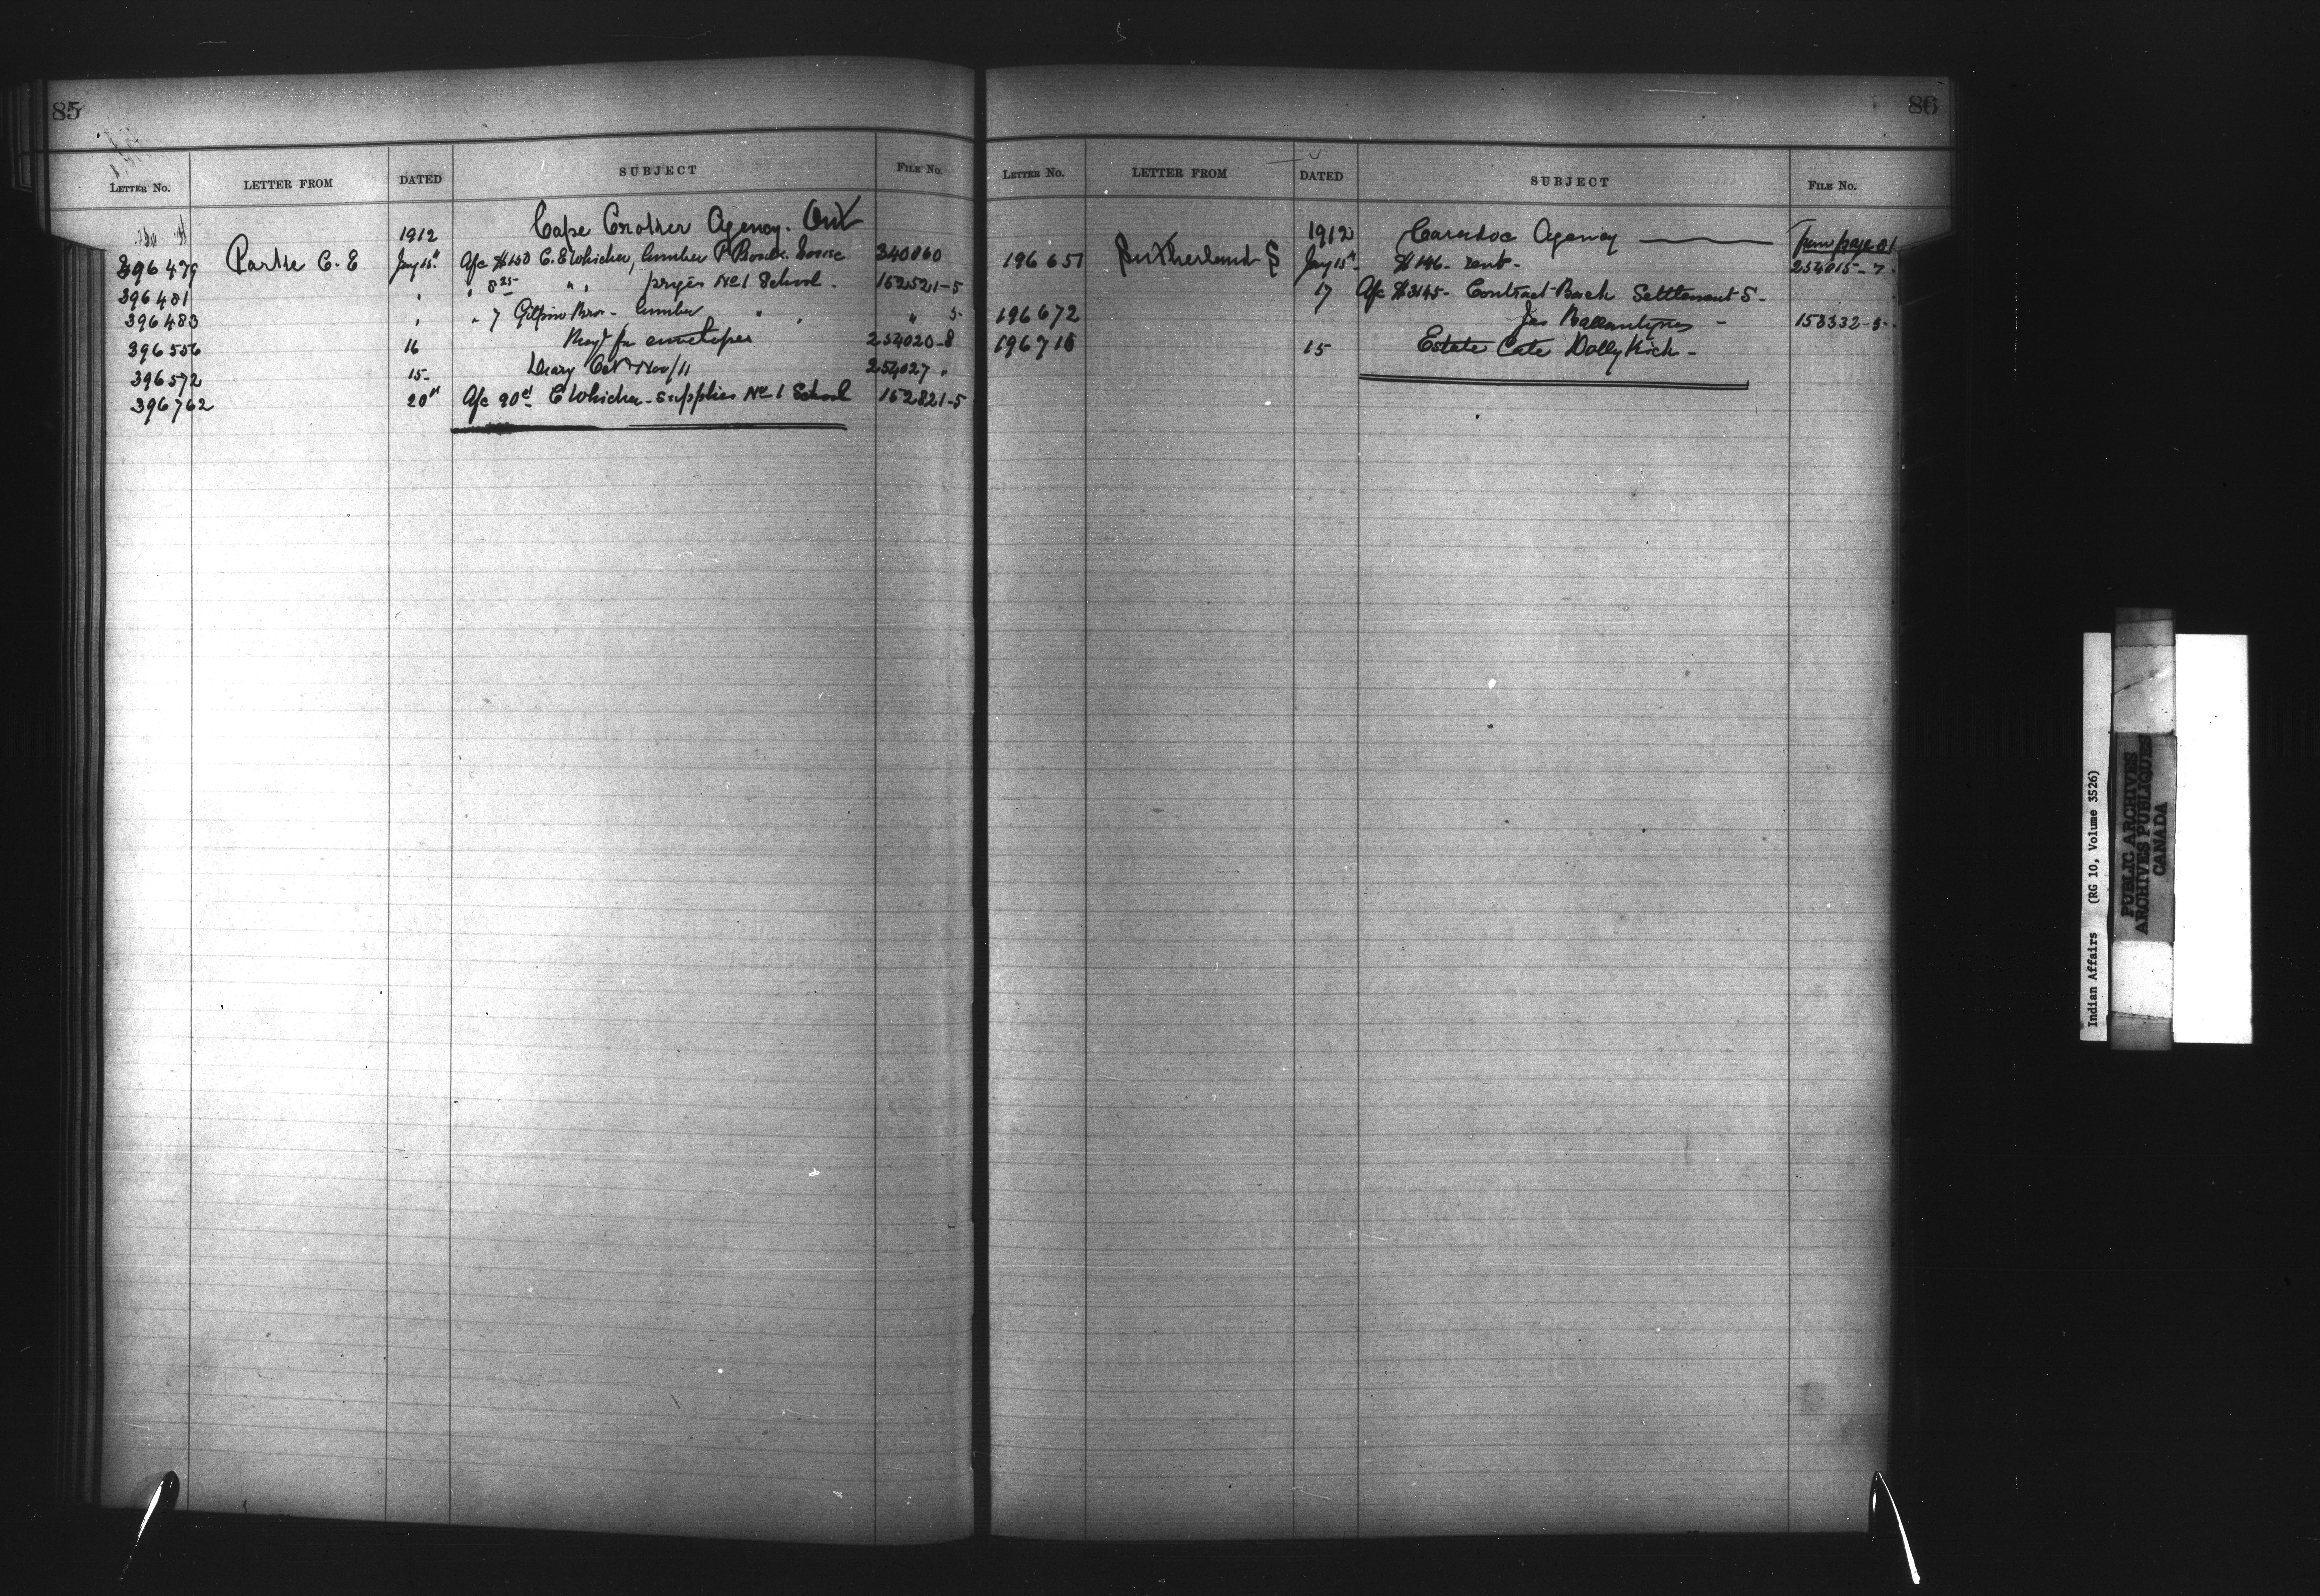 85
LETTER NO. LETTER FROM DATED SUBJECT FILE NO.
1912 Cape Croker Agency. Ont
396479 Parke C. E Jany 15" A/c $150 C. E Whicher, lumber P House 340060
396481 " " 8 25 " " prizes No 1 School. 152521-5
396483 " " 7 Gilpin Bros- lumber " " " 5-
396556 16 Reqt for envelopes 254020-8
396572 15- Diary Oct Nov/11 254027 "
396762 20" A/c 90c E Whicher - supplies No 1 School 162821-5
86
LETTER NO. LETTER FROM DATED SUBJECT FILE NO.
1912 Caradoc Agency from page 81
196651 Sutherland S Jany 15" $146- rent- 254015-7-
17 A/c $3145- Contract Back Settlement S-
196672 Jas Ballantynes - 153332-3-
196716 15 Estate Late Dolly Kick-
Indian Affairs (RG 10, Volume 3526)
PUBLIC ARCHIVES
ARCHIVES PUBLIQUES
CANADA